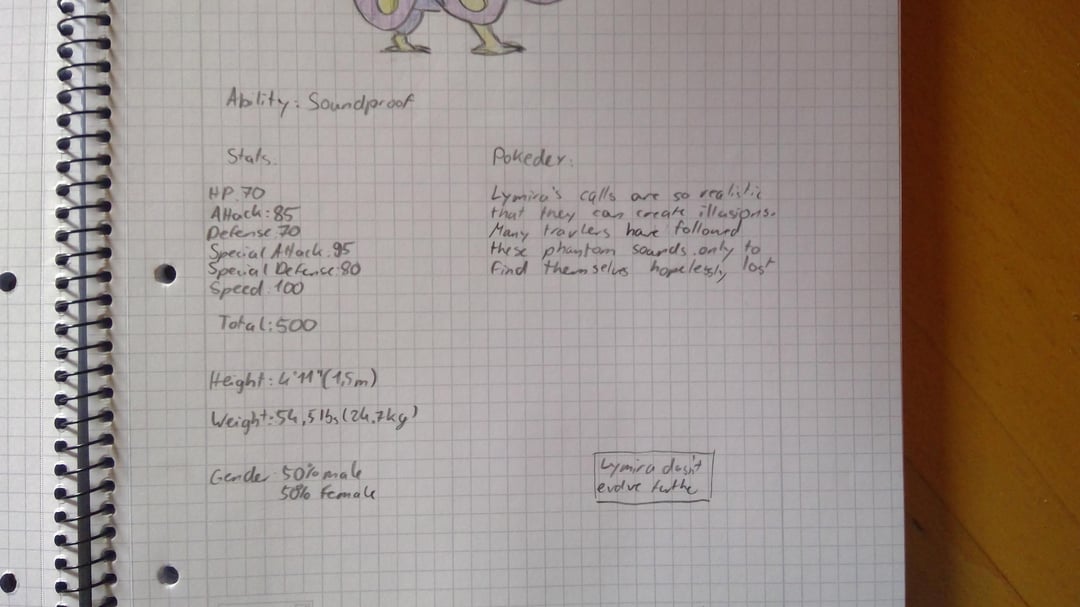 Ability: Soundproof
Stats:
HP 70
Attack: 85
Defense 70
Special Attack: 95
Special Defense: 80
Speed: 100
Total: 500
Height: 4'11" (1,5m)
Weight: 54,5 lbs (24.7kg)
Gender 50% male
50% Female
Pokeder:
Lymira's calls are so realistic
that they can create illusions.
Many travlers have followed
these phantom sounds only to
find themselves hopelessly lost
Lymira dosn't
evolve furthe